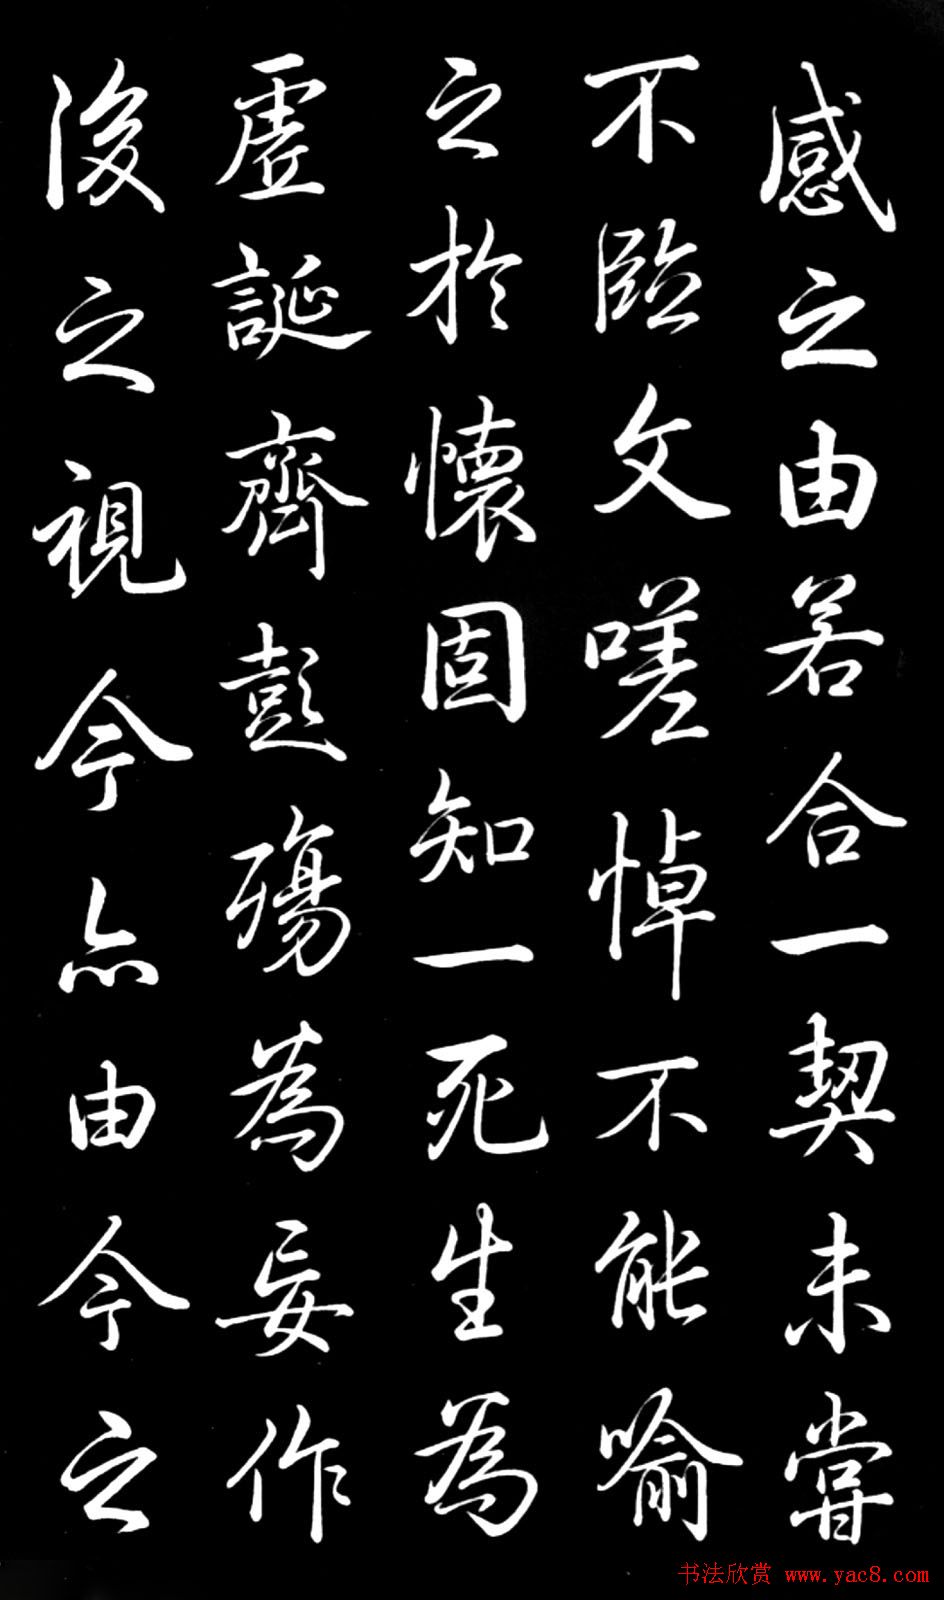 感之由若合一契未嘗
不臨文嗟悼不能喻
之於懷固知一死生為
虛誕齊彭殤為妄作
後之視今亦由今之
书法欣赏 www.yac8.com